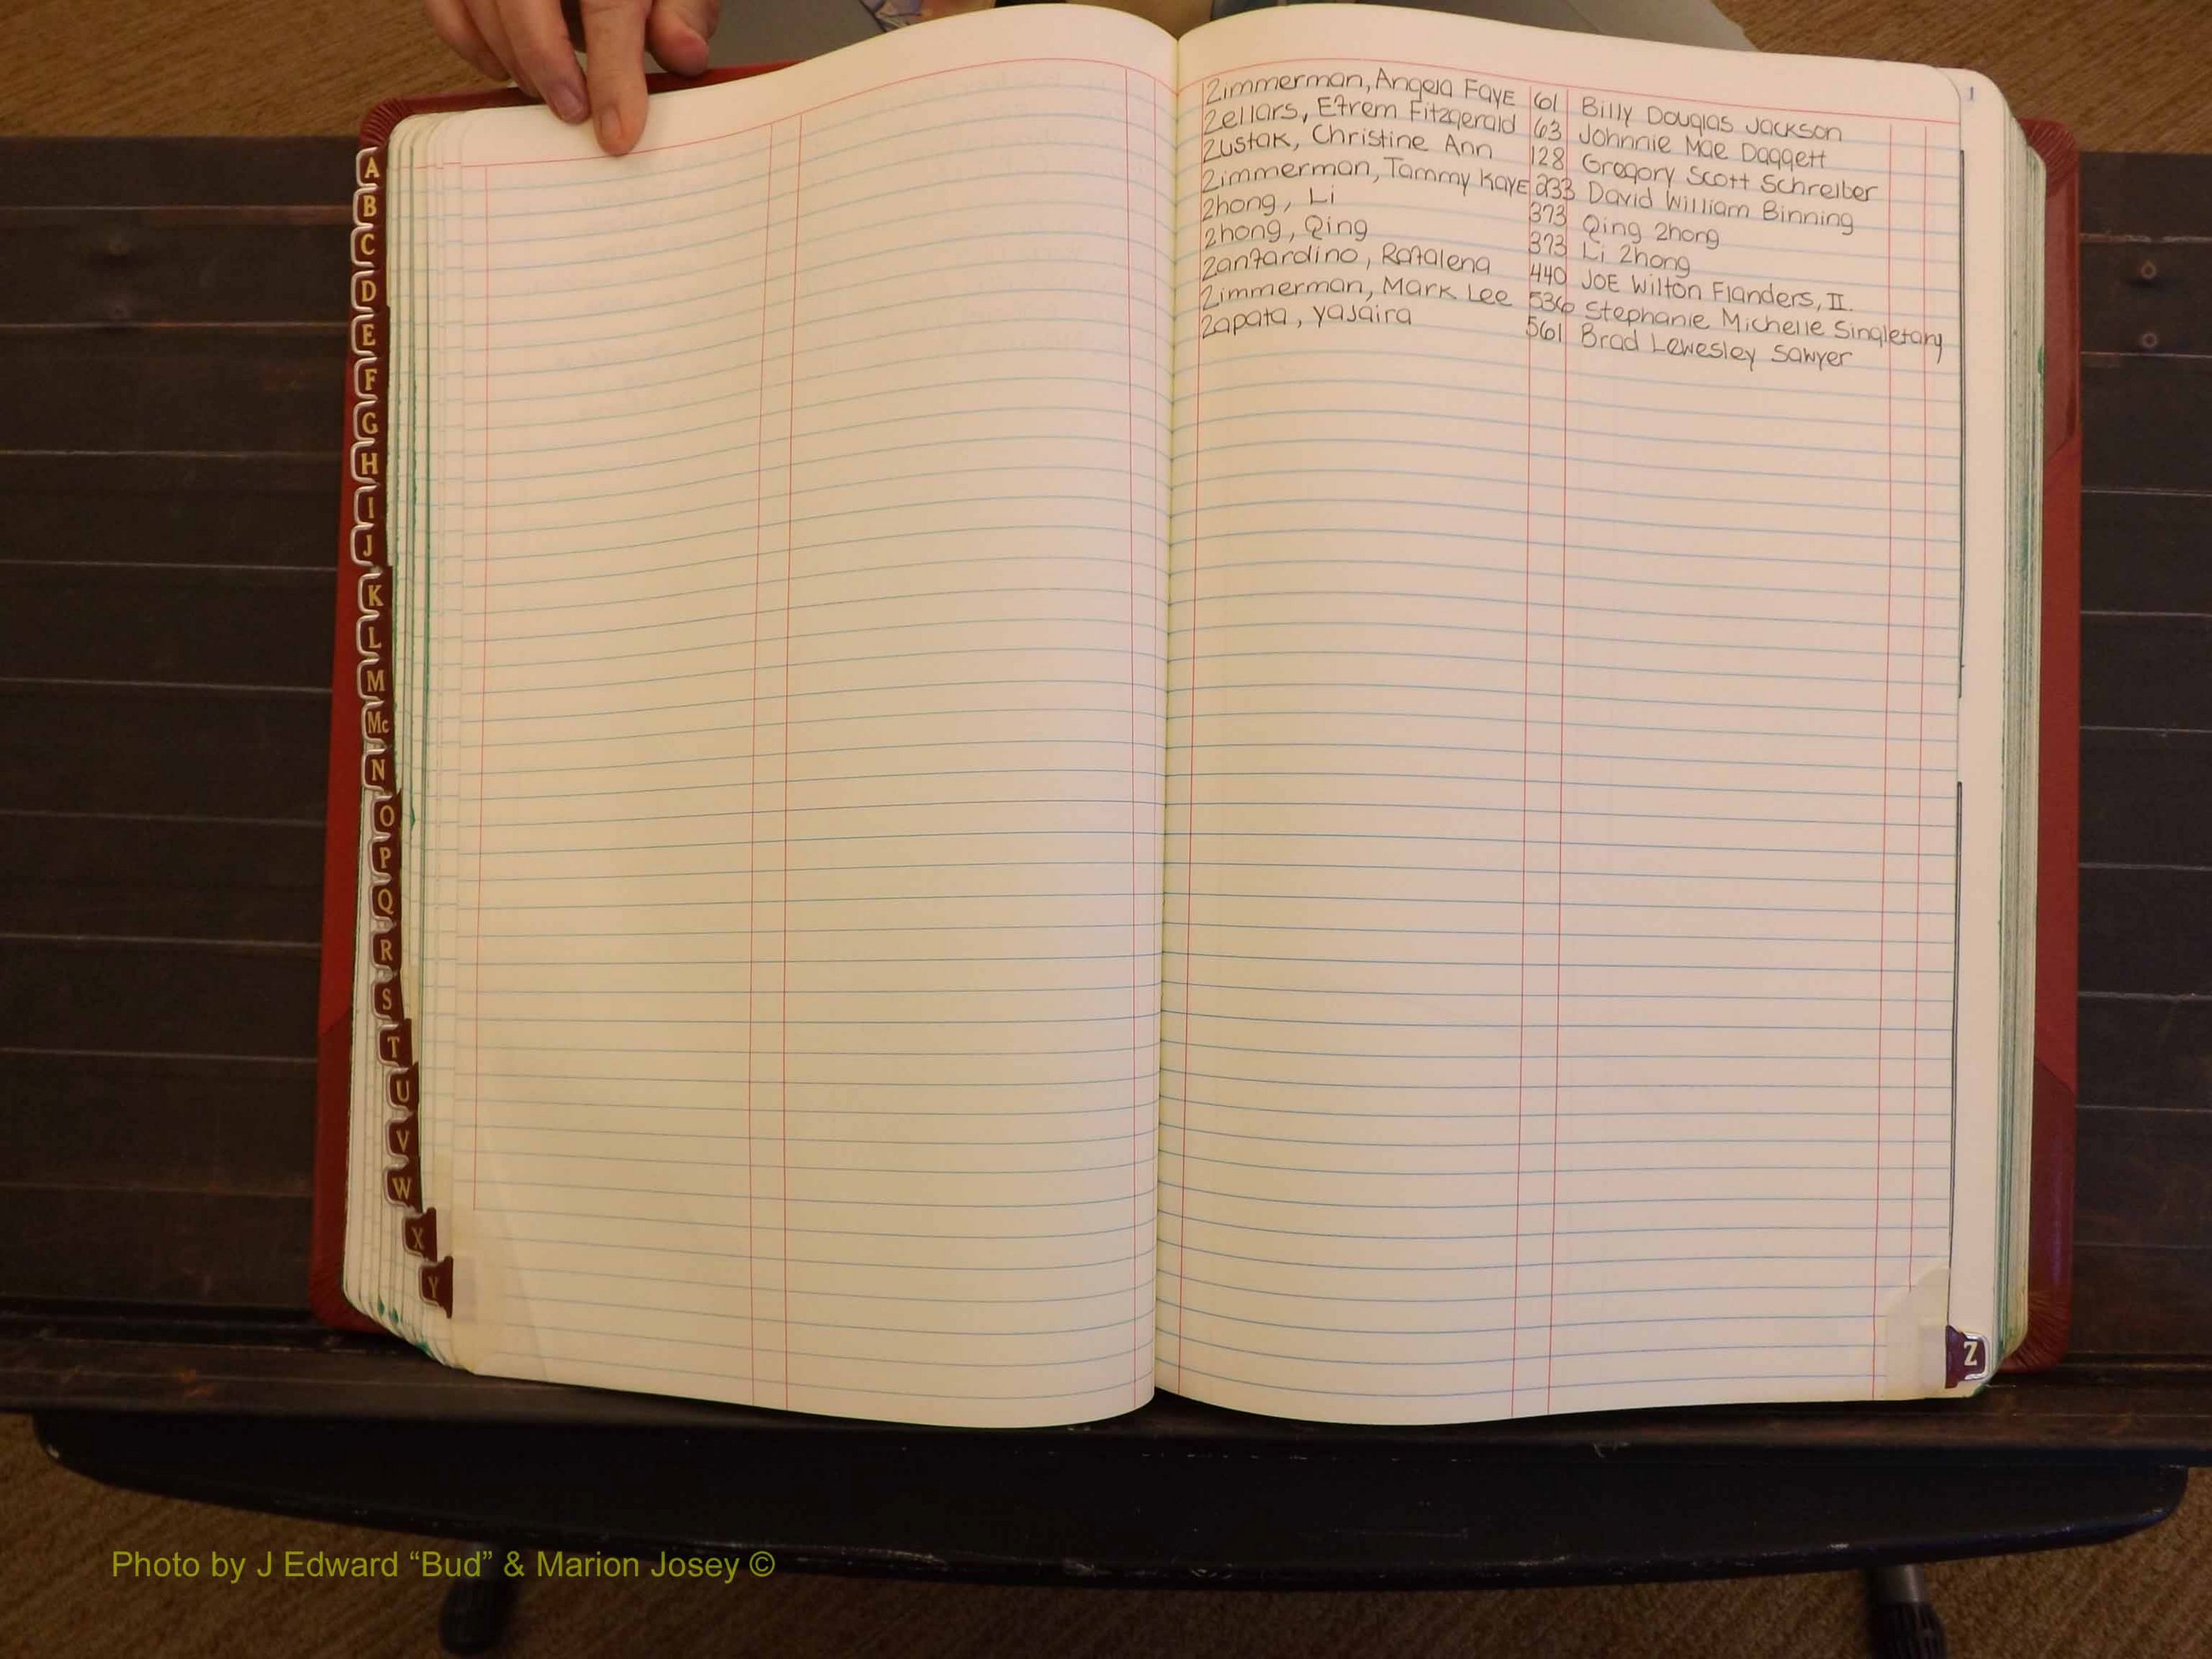 A
B
C
D
E
F
G
H
I
J
K
L
M
Mc
N
O
P
Q
R
S
T
U
V
W
X
Y
1
Zimmerman, Angela Faye 61 Billy Douglas Jackson
Zellars, Efrem Fitzgerald 63 Johnnie Mae Daggett
Zustak, Christine Ann 128 Gregory Scott Schreiber
Zimmerman, Tammy Kaye 233 David William Binning
Zhong, Li 373 Qing Zhong
Zhong, Qing 373 Li Zhong
Zanfardino, Rafalena 440 Joe Wilton Flanders, II.
Zimmerman, Mark Lee 536 Stephanie Michelle Singletary
Zapata, Yajaira 561 Brad Lewesley Sawyer
Z
Photo by J Edward “Bud” & Marion Josey ©